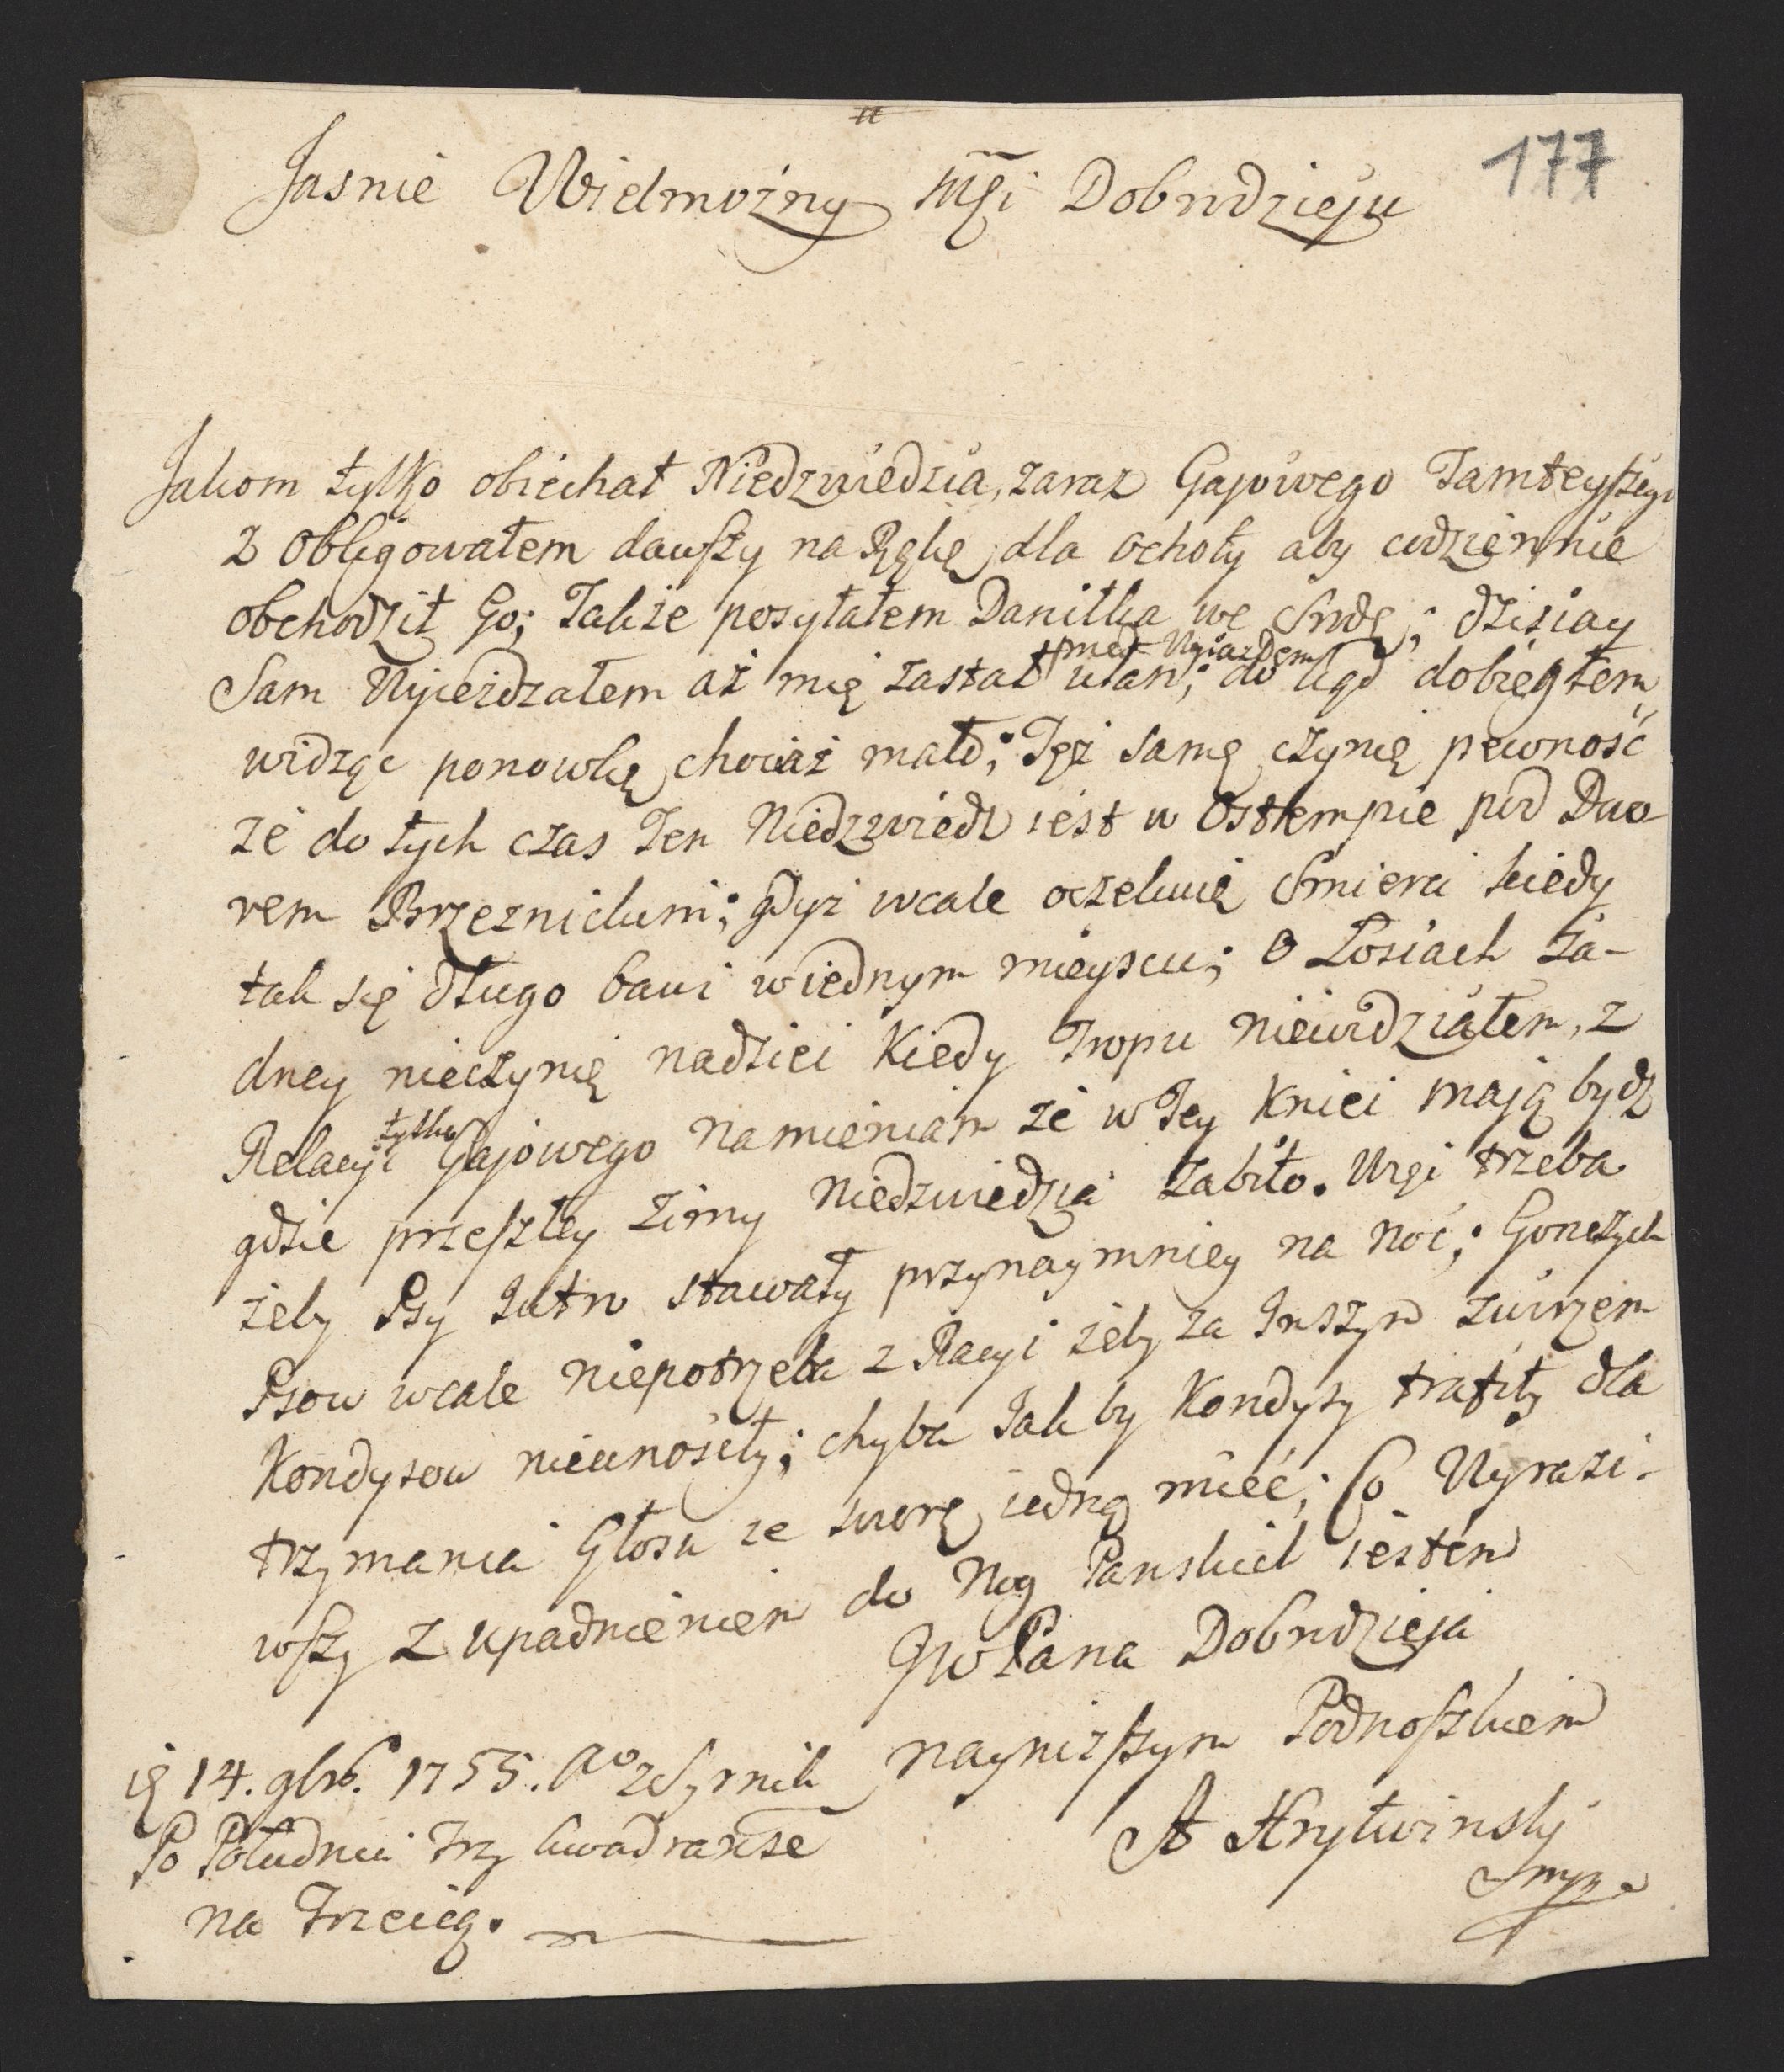 177
Jasnie Wielmożny Mći Dobrodzieju
Jakom tylko obiechał Niedzwiedzia, zaraz Gajowego Tamteyszego
z obligowałem dawszy na Rękę, dla ochoty aby codziennie
obchodził Go; Także posyłałem Daniłka we Srodę; dzisiay
przed Wyiazdem
Sam Wyieżdzałem aż mię zastał ułan; do kąd dobiegłem
widząc ponowkę chociaż mało; Tęż samę czynię pewność
że do tych czas Ten Niedzwiedz iest w Ostempie pod Dwo-
rem Brzeznickim; gdyż wcale oczekuię Smierci kiedy
tak się długo bawi w iednym mieyscu; O Łosiach ża-
dney nieczynię nadziei Kiedy Tropu niewidziałem, z
tylko
Relacyi Gajowego namieniam że w Tey Kniei mają bydz
gdzie przeszłey zimy Niedzwiedzia zabito. Więc trzeba
żeby Psy Jutro stawały przynaymniey na noc; Gonczych
Psow wcale niepotrzeba z Racyi żeby za Inszym zwirzem
Kondysow nieunosiły; chyba Jak by Kondysy trafiły dla
trzymania Głosu ze sworę iedną mieć; Co Wyrazi-
wszy z upadnieniem do Nog Panskich iestem
JW Pana Dobrodzieja
nayniższym Podnoszkiem
14. 9br. 1755. Ao z Syrnik
Po Południu Trzy kwadranse
na Trzecią.
A Hrytwinsky
Smpr